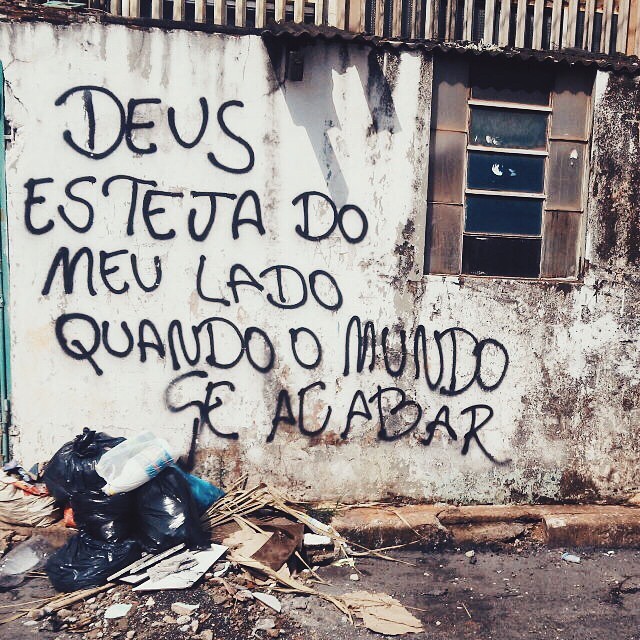 DEUS
ESTEJA DO
MEU LADO
QUANDO O MUNDO
SE ACABAR